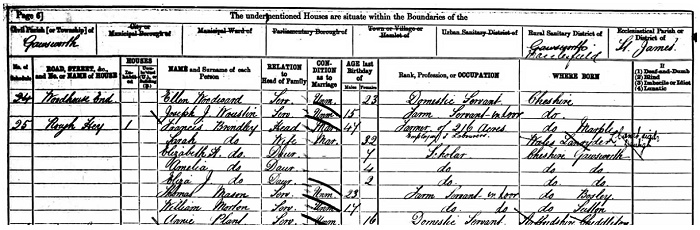 Page 6]
The undermentioned Houses are situate within the Boundaries of the
Civil Parish [or Township] of
City or Municipal Borough of
Municipal Ward of
Parliamentary Borough of
Town or Village or Hamlet of
Urban Sanitary District of
Rural Sanitary District of
Ecclesiastical Parish or District of
Gawsworth
Macclesfield
St. James
No. of Schedule
ROAD, STREET, &c., and No. or NAME of HOUSE
HOUSES
NAME and Surname of each Person
RELATION to Head of Family
CONDITION as to Marriage
AGE last Birthday of
Males
Females
Rank, Profession, or OCCUPATION
WHERE BORN
If
(1) Deaf-and-Dumb
(2) Blind
(3) Imbecile or Idiot
(4) Lunatic
24 Woodhouse End Ellen Woodward Serv. Unm 23 Domestic Servant Cheshire
Joseph J Serv. Unm 15 Farm Servant indoor do.
25 Rough Hey 1 Francis Brindley Head Mar. 47 Farmer of 216 Acres do Marple
Employing Labourers
Sarah do Wife Mar. 32 Wales
Elizabeth A. do Daur. 7 Scholar Cheshire Gawsworth
Amelia do Daur. 4 do do
Eliza J do Daur. 2 do do
Thomas Mason Serv. Unm 23 Farm Servant indoor do Bosley
William Morton Serv. Unm 17 do do do Sutton
Annie Plant Serv. Unm 16 Domestic Servant Staffordshire Cheddleton